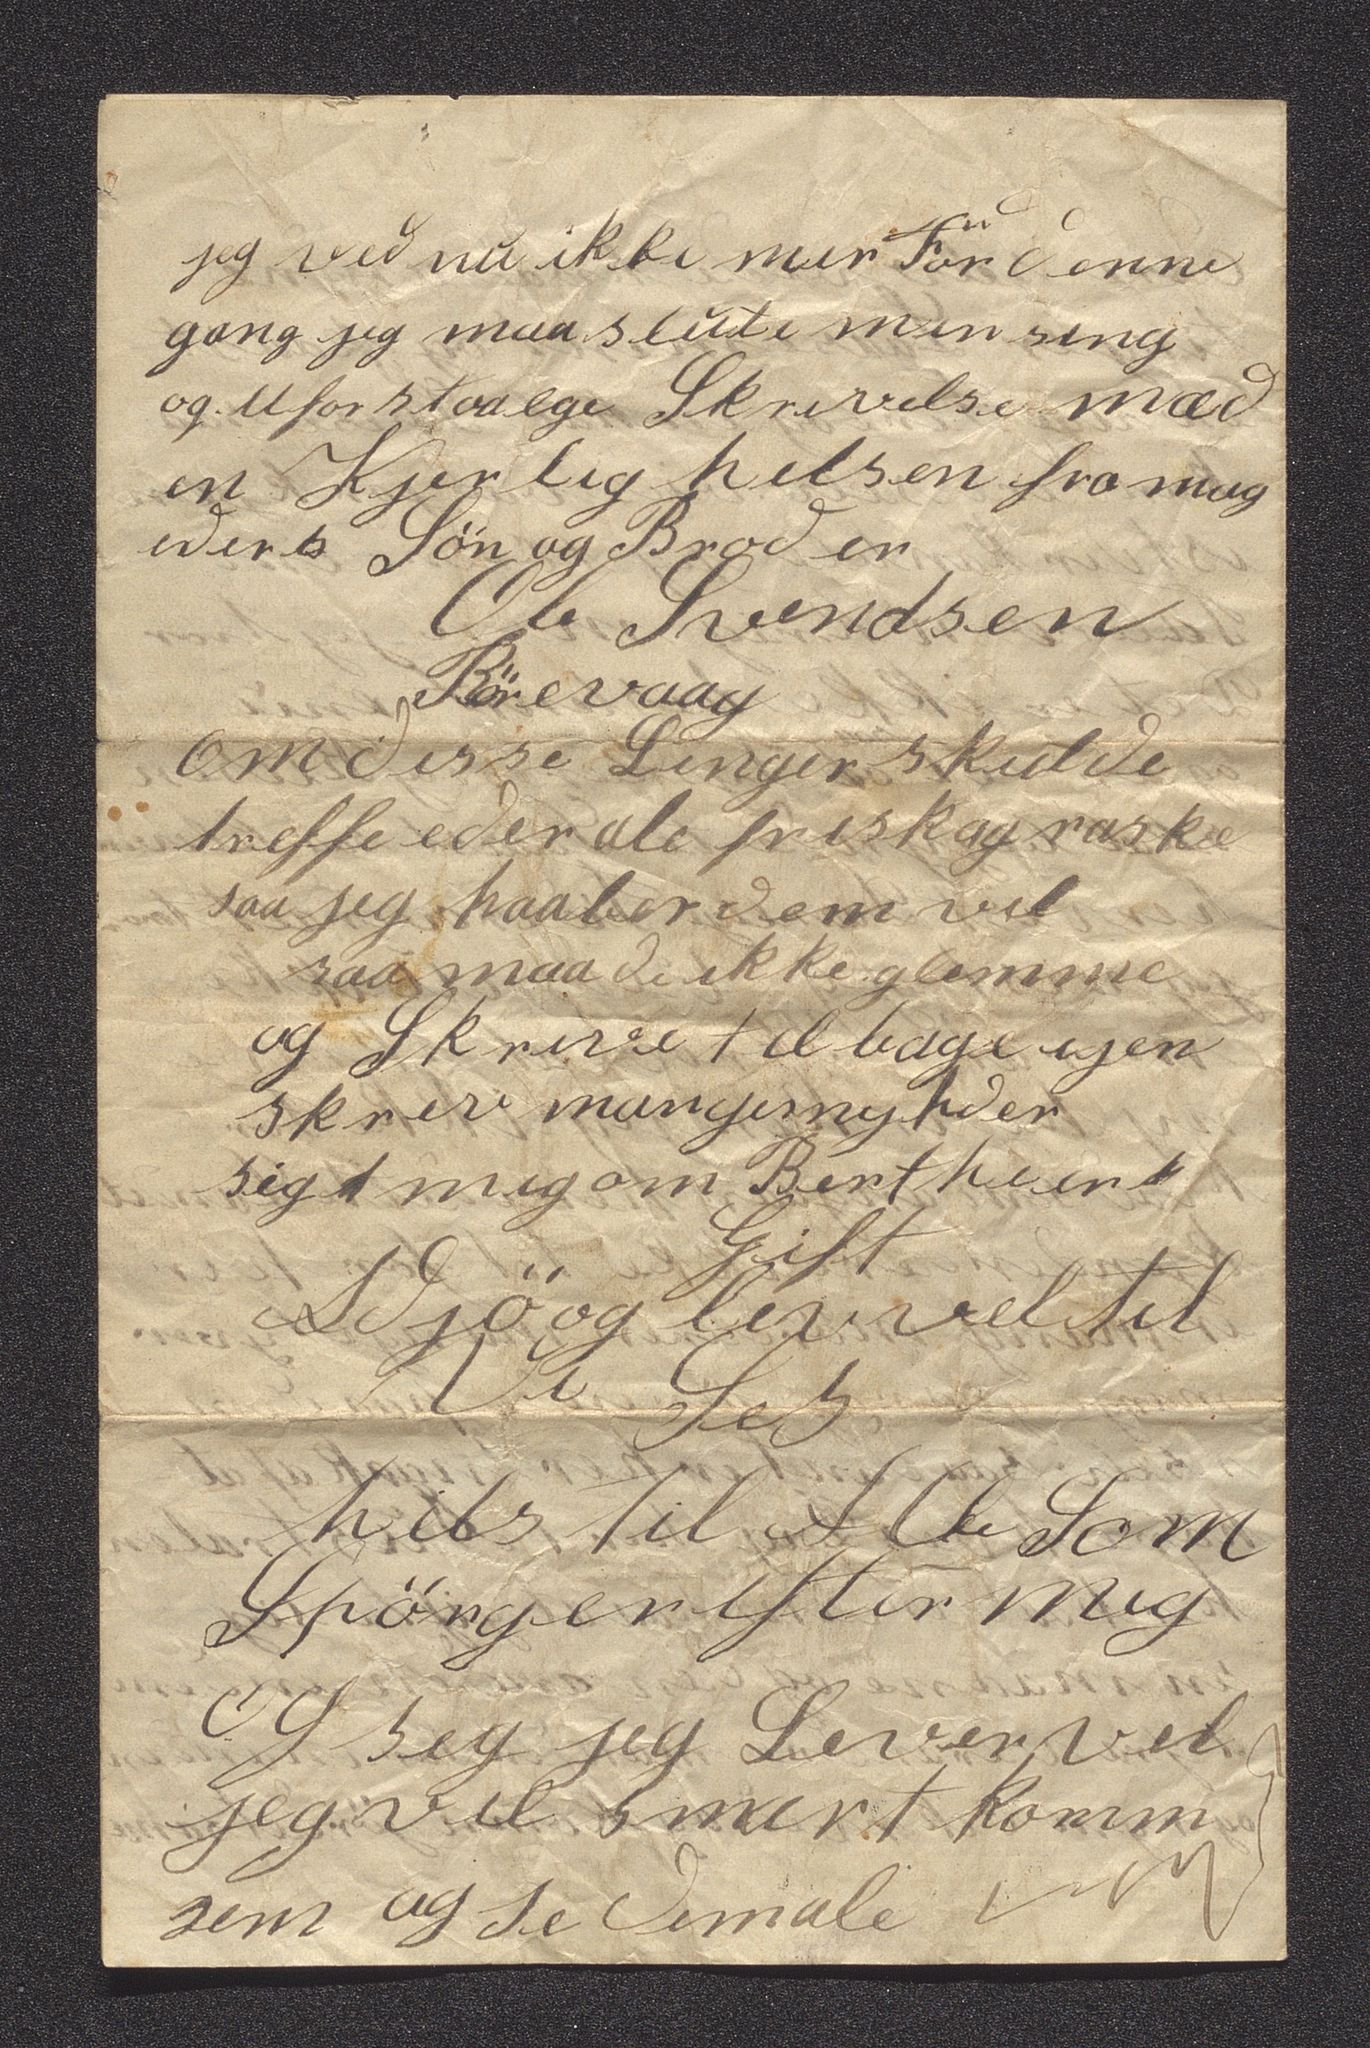 jeg ved nu ikke mer För denne
gang jeg maa slute min ring
og Uforstaalge Skrivelse mæd
en Kjerlig helsen fra mig
eders Sön og Broder
Ole Svendsen
Rörevaag
om disse Linjer skulde
treffe eder ale frisk og raske
saa jeg haaber dem vil
saa maa de ikke glemme
og Skrive tilbage igen
skrev mange nyheder
sigt mig om Berthe er
Gift
Adjö og lev vel til
Vi Ses
hils til Ale Som
Spörger efter mig
OG seg jeg Lever vel
jeg vil snart komm
jem og se dem ale